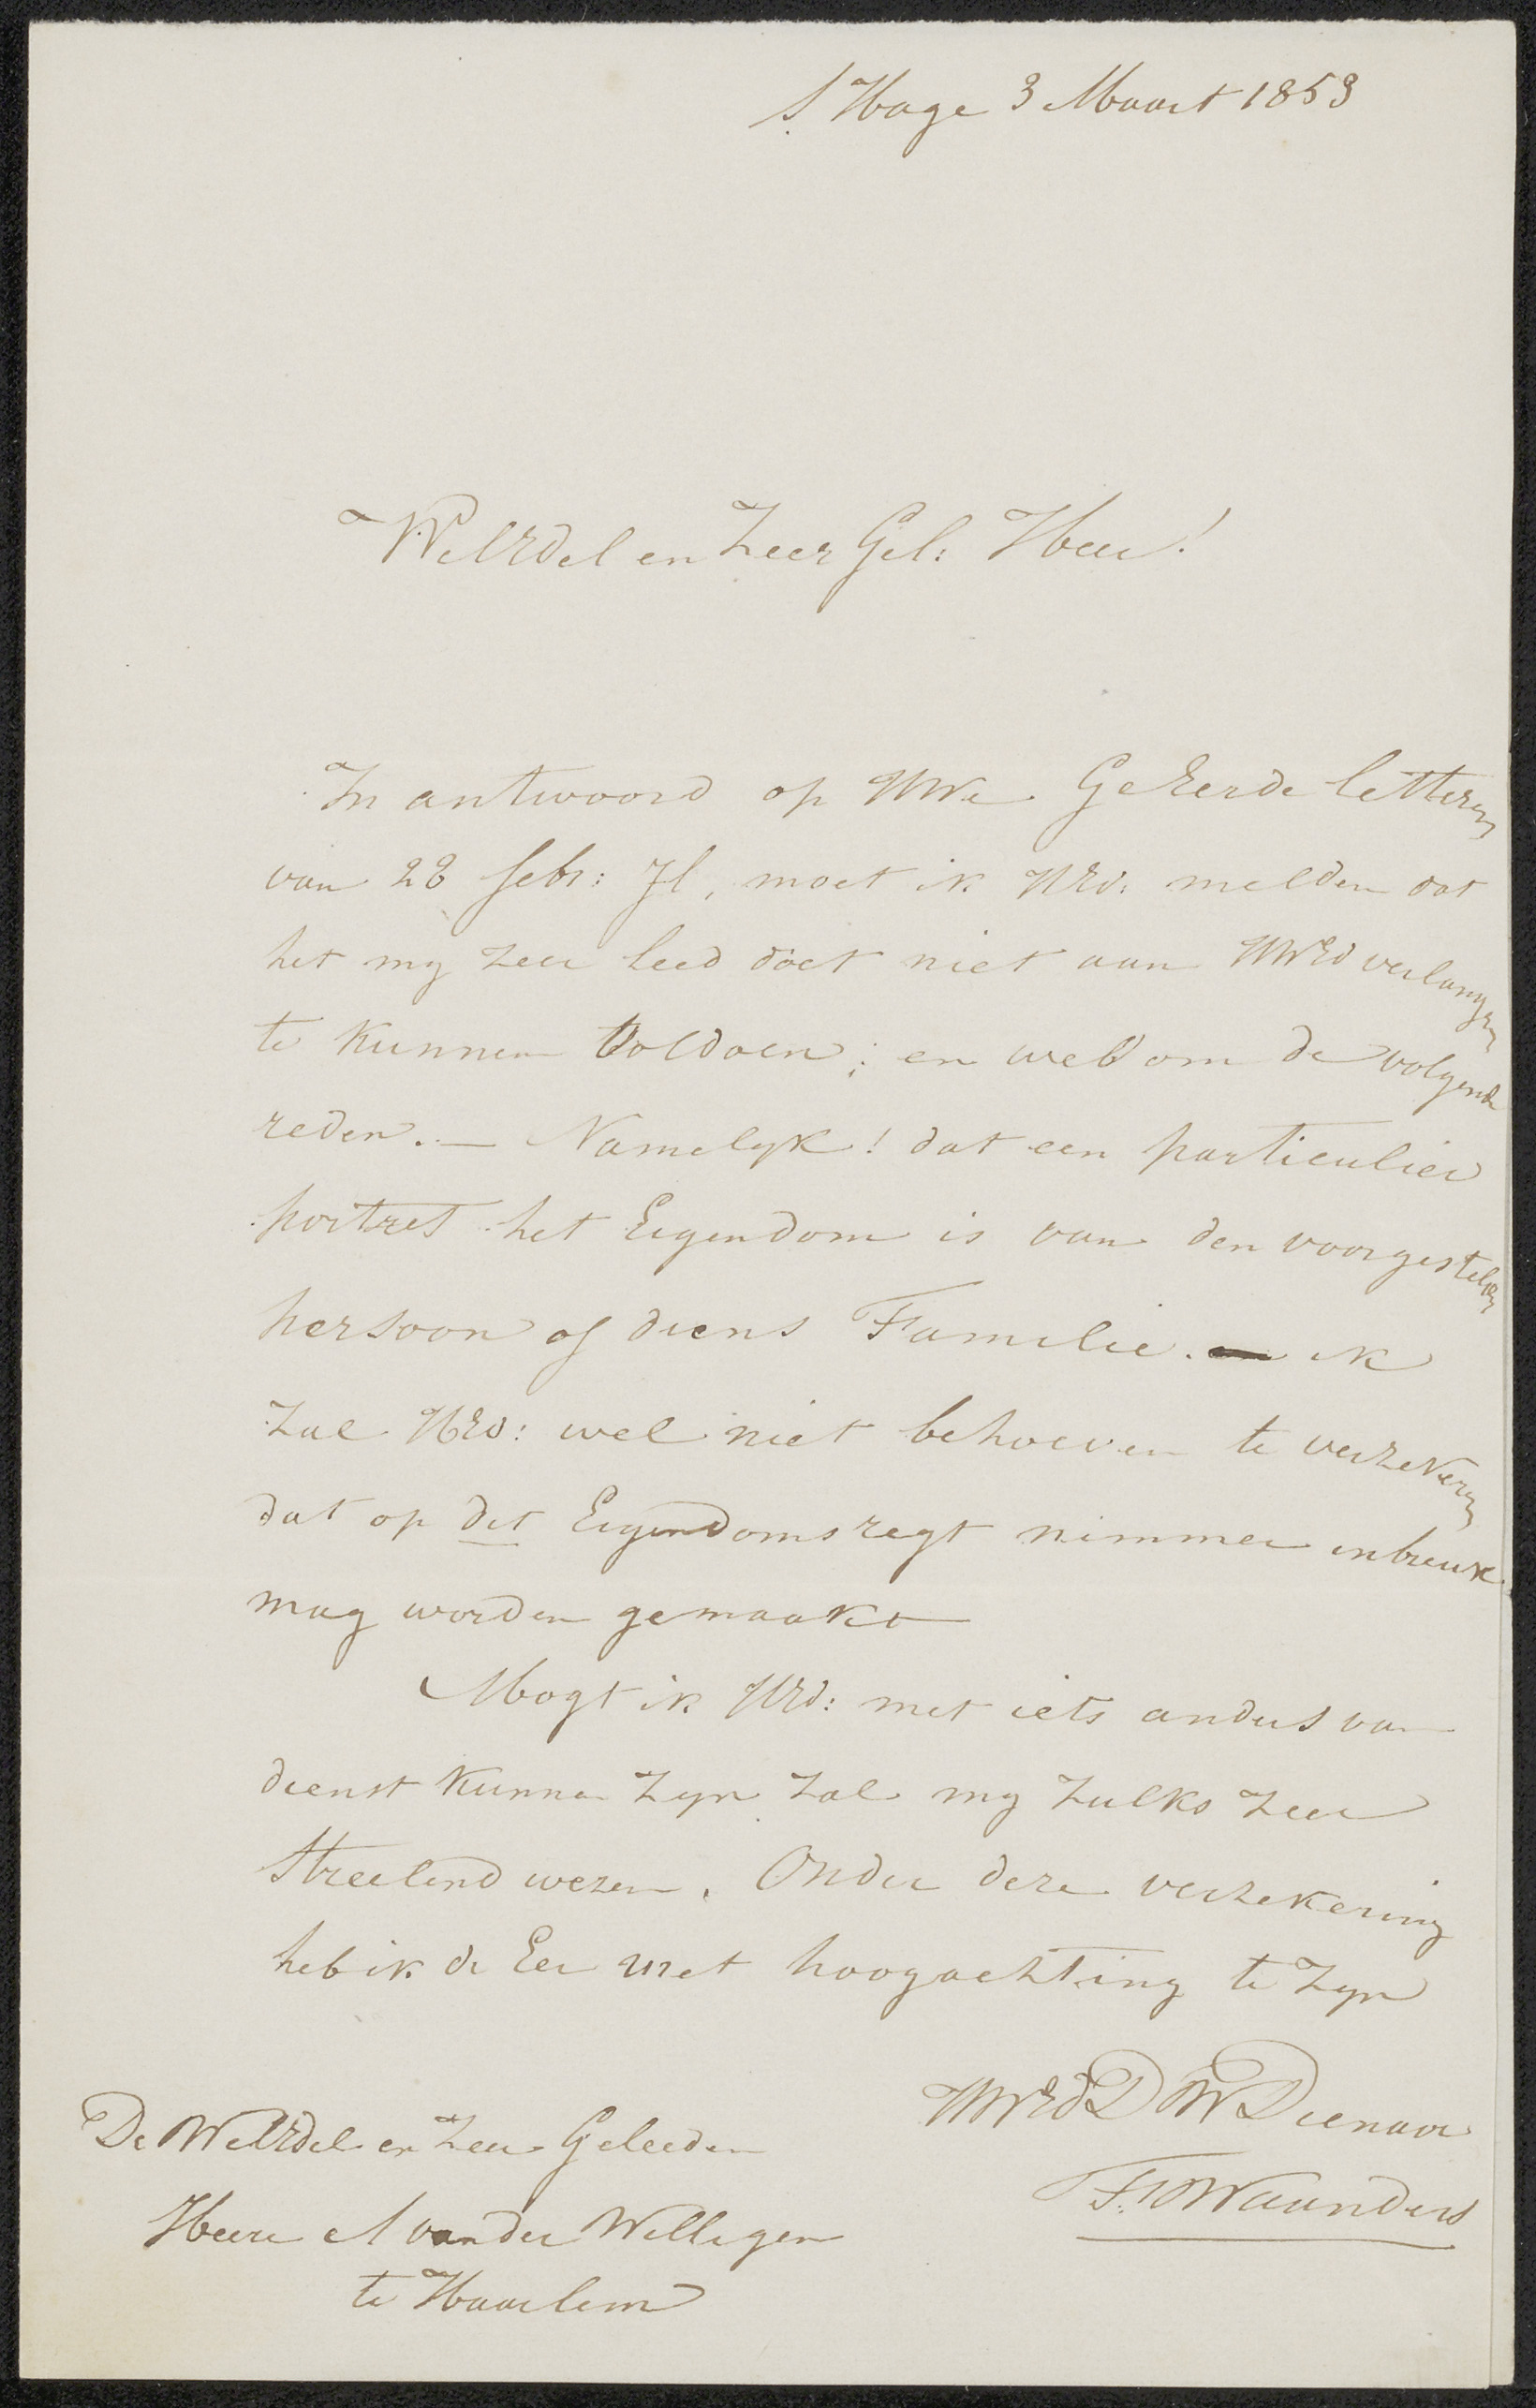 s Hage 3 Maart 1853
WelEdel en Zeer Gel: Heer!
In antwoord op UWe GeEerde letteren
van 28 febr: Jl, moet ik UEd: melden dat
het my zeer leed doet niet aan UWEd verlangen
te kunnen voldoen; en wel om de volgende
reden. — Namelyk! dat een particulier
portret het Eigendom is van den voorgestelden
persoon of diens Familie. ik
zal UEd: wel niet behoeven te verzekeren
dat op dit Eigendomsregt nimmer inbreuk
mag worden gemaakt
Mogt ik UEd: met iets anders van
dienst kunnen zyn zal my zulks zeer
Streelend wezen. Onder deze verzekering
heb ik de Eer met hoogachting te zyn
UWEdDWDienaar
F. Waanders
De WelEdel en Zeer Geleeden
Heere A van der Willigen
te Haarlem